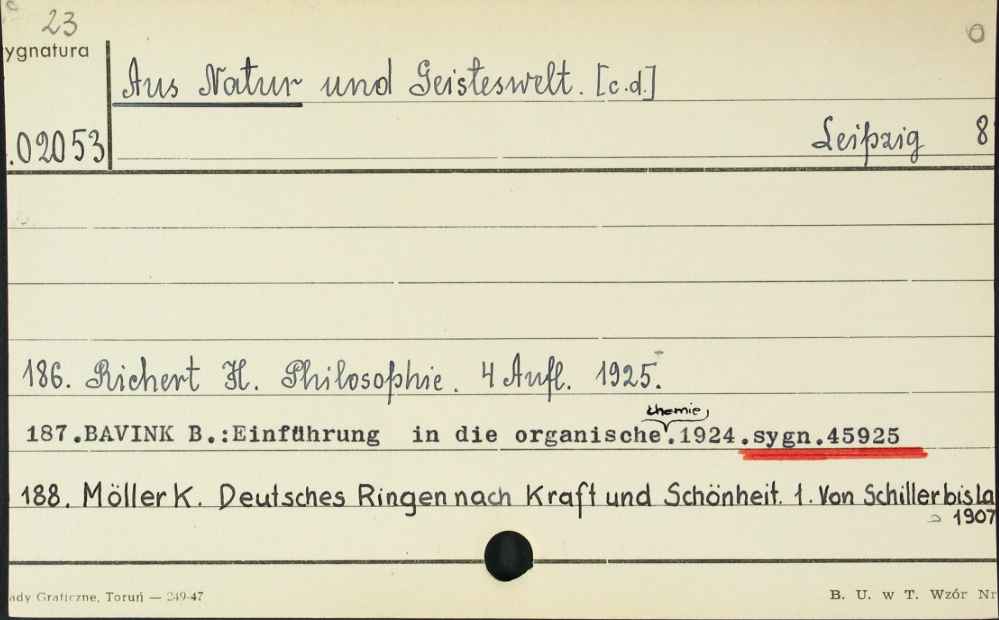 23
ygnatura
Aus Natur und Geisteswelt. [c.d.]
.02053
Leipzig 8
186. Richert H. Philosophie. 4 Aufl. 1925.
chemie,
187.BAVINK B.:Einführung in die organische.1924.sygn.45925
188. Möller K. Deutsches Ringen nach Kraft und Schönheit. 1. Von Schiller bis La
1907
ady Graficzne, Toruń — 249-47
B. U. w T. Wzór Nr